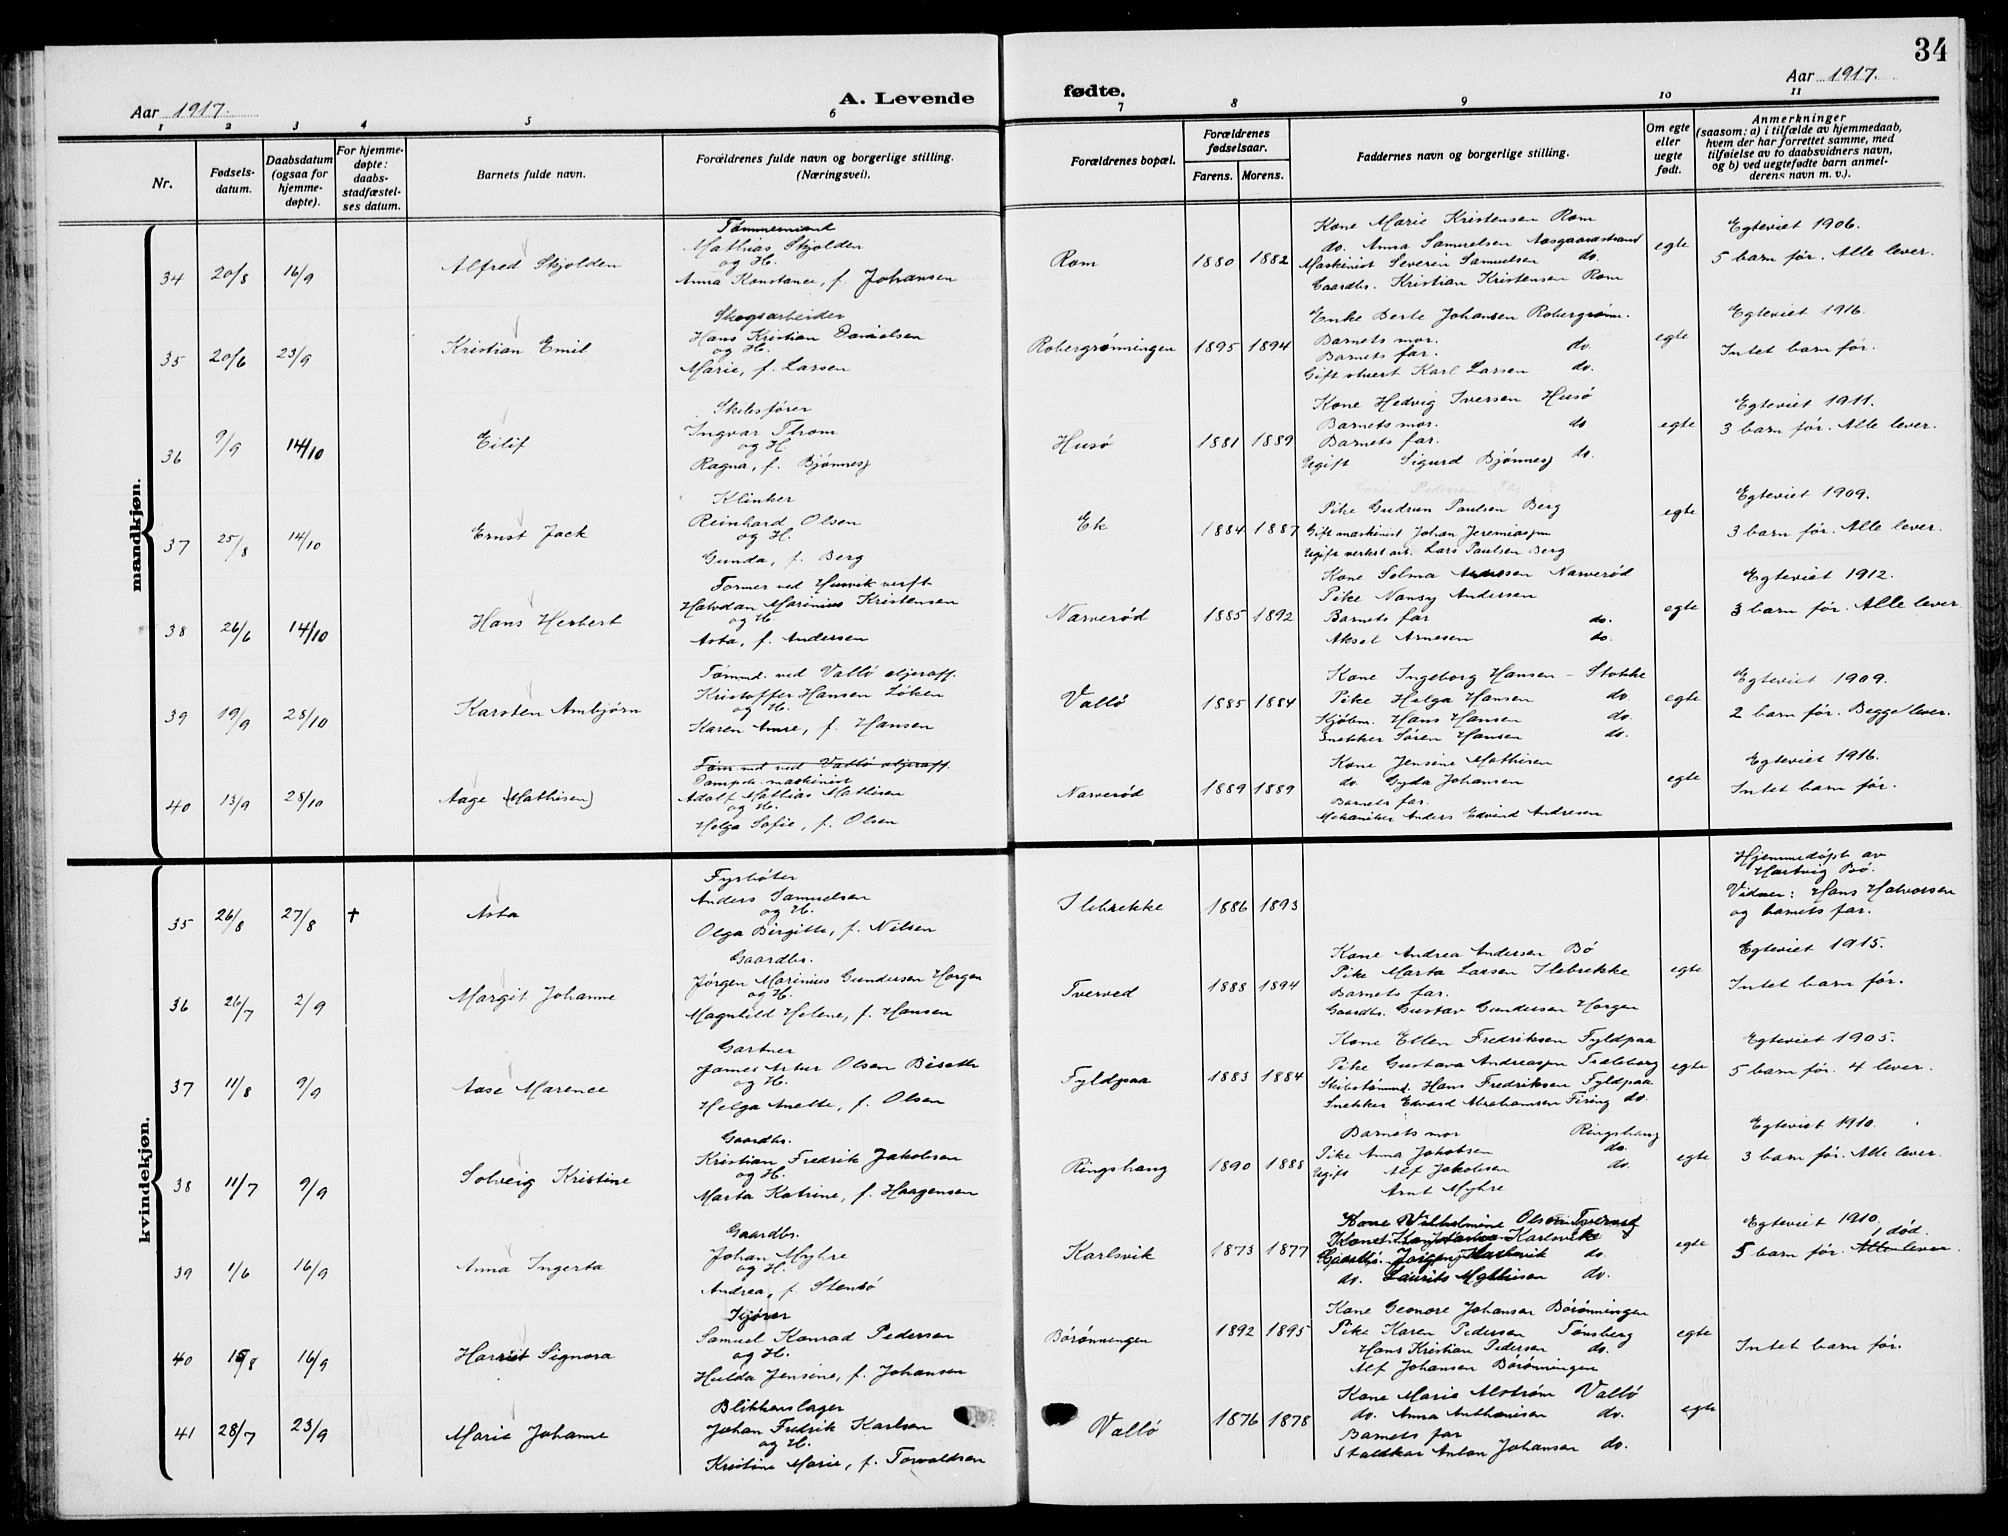 34
Aar 1917.
A. Levende
fødte.
Aar 1917.
1 2 3 4 5 6 7 8 9 10 11
Nr.
Fødsels-
datum.
Daabsdatum
(ogsaa for
hjemme-
døpte).
For hjemme-
døpte:
daabs-
stadfæstel-
ses datum.
Barnets fulde navn.
Forældrenes fulde navn og borgerlige stilling.
(Næringsvei).
Forældrenes bopæl.
Forældrenes
fødselsaar.
Farens. Morens.
Faddernes navn og borgerlige stilling.
Om egte
eller
uegte
født.
Anmerkninger
(saasom: a) i tilfælde av hjemmedaab,
hvem der har forrettet samme, med
tilføielse av to daabsvidners navn,
og b) ved uegtefødte barn anmel-
derens navn m. v.).
mandkjøn.
34 20/8 16/9 Alfred Skjolden
Tømmermand
Mathias Skjolden
og H.
Anna Konstance, f. Johansen
Rom 1880 1882
Kone Marie Kristensen Rom
do. Anna Samuelsen Aasgaardstrand
Maskinist Severin Samuelsen do.
Gaardbr. Kristian Kristensen Rom
egte
Egteviet 1906.
5 barn før. Alle lever.
35 20/6 23/9 Kristian Emil
Skogsarbeider
Hans Kristian Danielsen
og H.
Marie, f. Larsen
Robergrønningen 1895 1894
Enke Berte Johansen Robergrønn.
Barnets mor.
Barnets far. do.
Gift stuert Karl Larsen do.
egte
Egteviet 1916.
Intet barn før.
36 9/9 14/10 Eilif
Skibsfører
Ingvar Thom
og H.
Ragna, f. Bjønnes
Husø 1881 1889
Kone Hedvig Iversen Husø
Barnets mor. do
Barnets far.
Ugift Sigurd Bjønnes do.
egte
Egteviet 1911.
3 barn før. Alle lever.
37 25/8 14/10 Ernst Jack
Klinker
Reinhard Olsen
og H.
Gunda, f. Berg
Ek 1884 1887
Pike Gudrun Paulsen Berg
Gift maskinist Johan Jeremiassen
Ugift verkst.arb. Lars Paulsen Berg
egte
Egteviet 1909.
3 barn før. Alle lever.
38 26/6 14/10 Hans Herbert
Former ved Husvik verft
Halvdan Marinius Kristensen
og H.
Asta, f. Andersen
Narverød 1885 1892
Kone Selma Arnesen Narverød
Pike Nansy Andersen
Barnets far do.
Aksel Arnesen do.
egte
Egteviet 1912.
3 barn før. Alle lever.
39 19/9 28/10 Karsten Ambjørn
Tømmd. ved Vallø oljeraff.
Kristoffer Hansen Løken
og H.
Karen Amre, f. Hansen
Vallø 1885 1884
Kone Ingeborg Hansen - Stokke
Pike Helga Hansen do
Kjøbm. Hans Hansen do.
Snekker Søren Hansen do.
egte
Egteviet 1909.
2 barn før. Begge lever.
40 13/9 28/10 Aage (Mathisen)
Tømmd ved Vallø oljeraff.
Dampsk. maskinist
Adolf Mathias Mathisen
og H.
Helga Sofie, f. Olsen
Narverød 1889 1889
Kone Jensine Mathisen
do. Gyda Johansen
Barnets far.
Mekaniker Anders Edvind Andresen
egte
Egteviet 1916.
Intet barn før.
kvindekjøn.
35 26/8 27/8 † Asta
Fyrbøter
Anders Samuelsen
og H.
Olga Birgitte, f. Nilsen
Ilebrekke 1886 1893
Hjemmedøpt av
Hartvig Bø.
Vidner: Hans Halvorsen
og barnets far.
36 26/7 2/9 Margit Johanne
Gaardbr.
Jørgen Marinius Gundersen Horgen
og H.
Magnhild Helene, f. Hansen
Tverved 1888 1894
Kone Andrea Andersen Bø
Pike Marta Larsen Ilebrekke
Barnets far.
Gaardbr. Gustav Gundersen Horgen
egte
Egteviet 1915.
Intet barn før.
37 11/8 9/9 Aase Marence
Gartner
James Artur Olsen Bisetth
og H.
Helga Anette, f. Olsen
Fyldpaa 1883 1884
Kone Ellen Fredriksen Fyldpaa
Pike Gustava Andreassen Traleborg
Skibstømmd. Hans Fredriksen Fyldpaa
Snekker Edvard Abrahamsen Firing do.
egte
Egteviet 1905.
5 barn før. 4 lever.
38 11/7 9/9 Solveig Kristine
Gaardbr.
Kristian Fredrik Jakobsen
og H.
Marta Katrine, f. Haagensen
Ringshaug 1890 1888
Barnets mor Ringshaug
Pike Anna Jakobsen do.
Ugift Alf Jakobsen do.
Arnt Myhre
egte
Egteviet 1910.
3 barn før. Alle lever.
39 1/6 16/9 Anna Ingerta
Gaardbr.
Johan Myhre
og H.
Andrea, f. Stensø
Karlsvik 1873 1877
Kone Vilhelmine Olsen Tverved
Karlsvik
Gaardbr. Jørgen Karlsvik do.
do. Laurits Mathisen do.
egte
Egteviet 1910.
1 død.
5 barn før. Alle lever.
40 15/8 16/9 Harriet Signora
Kjører
Samuel Konrad Pedersen
og H.
Hulda Jensine, f. Johansen
Børønningen 1892 1895
Kone Geonore Johansen Børønningen
Pike Karen Pedersen Tønsberg
Hans Kristian Pedersen do.
Alf Johansen Børønningen
egte
Intet barn før.
41 28/7 23/9 Marie Johanne
Blikkenslager
Johan Fredrik Karlsen
og H.
Kristine Marie, f. Torvaldsen
Vallø 1876 1878
Kone Marie Alstrøm Vallø
do. Anna Anthonisen do.
Barnets far
Staldkar Anton Johansen do.
egte